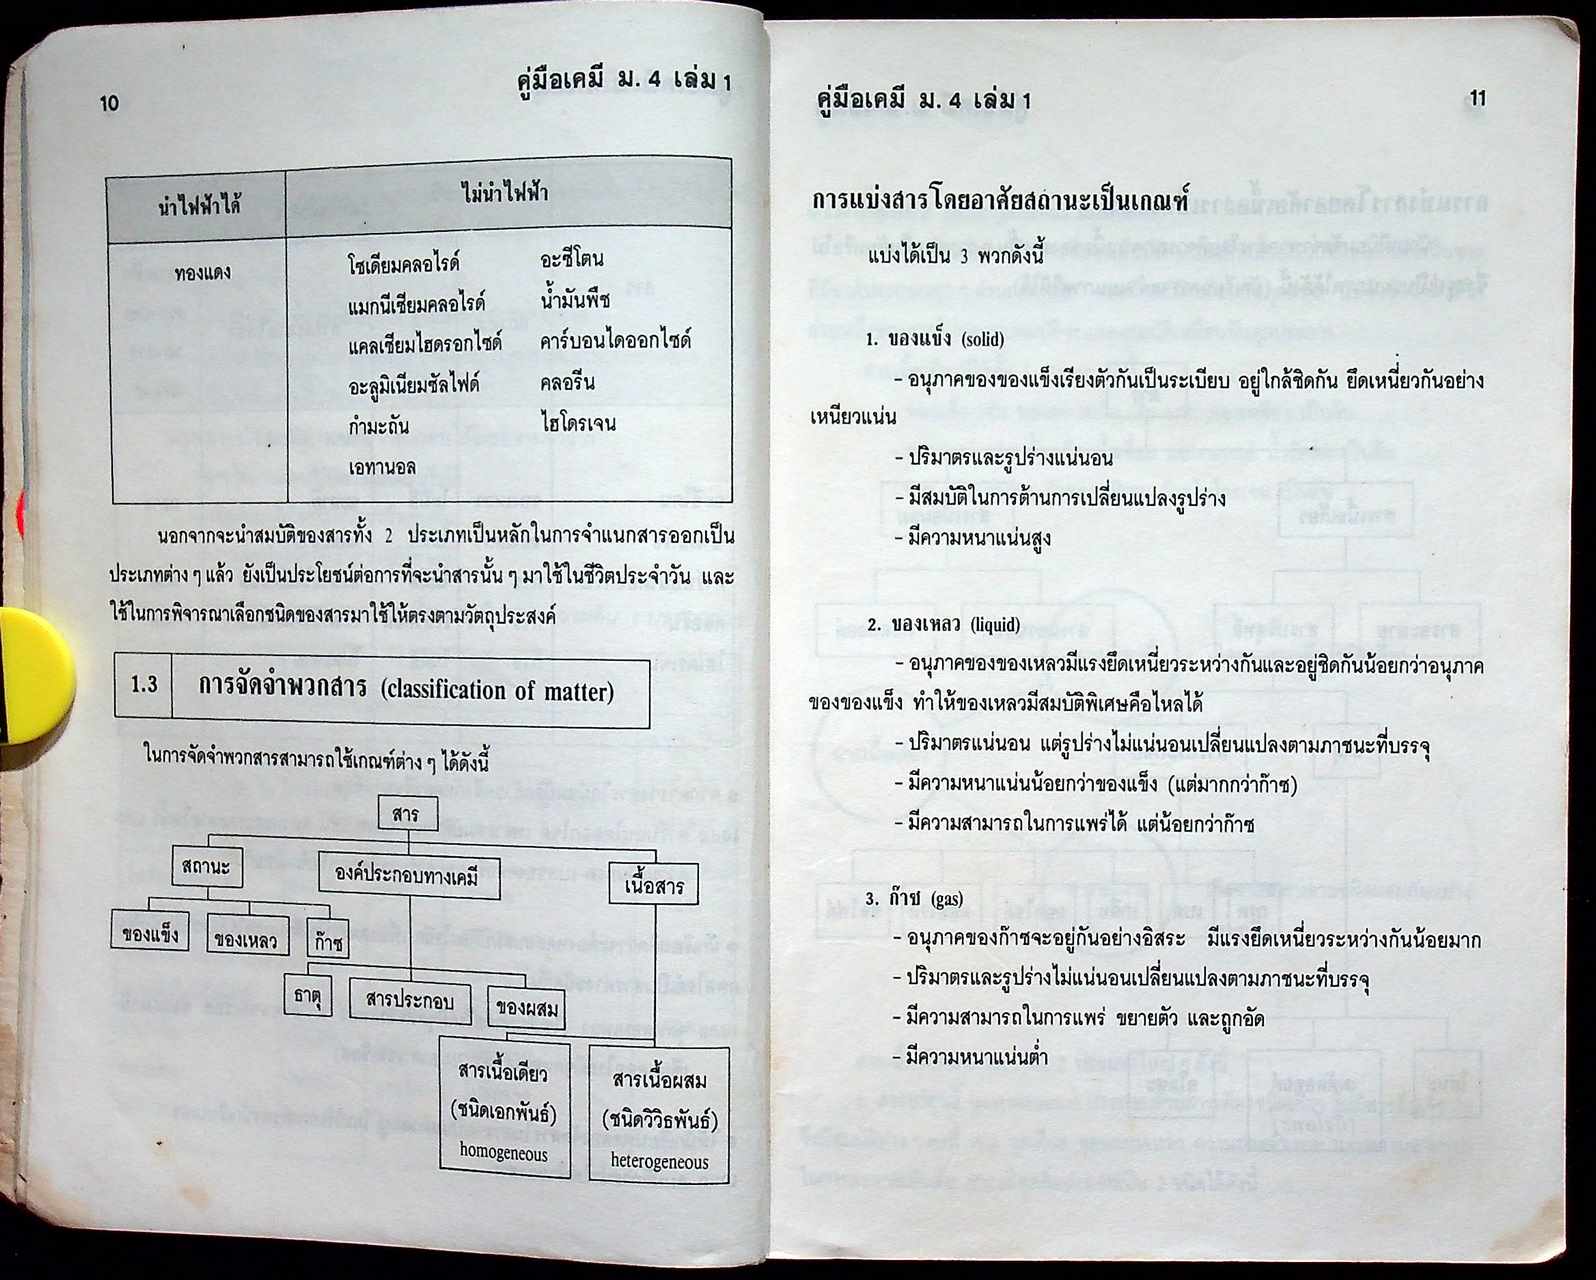 10
คู่มือเคมี ม. 4 เล่ม 1
นำไฟฟ้าได้ ไม่นำไฟฟ้า
ทองแดง โซเดียมคลอไรด์ อะซีโตน
แมกนีเซียมคลอไรด์ น้ำมันพืช
แคลเซียมไฮดรอกไซด์ คาร์บอนไดออกไซด์
อะลูมิเนียมซัลไฟด์ คลอรีน
กำมะถัน ไฮโดรเจน
เอทานอล
นอกจากจะนำสมบัติของสารทั้ง 2 ประเภทเป็นหลักในการจำแนกสารออกเป็น
ประเภทต่าง ๆ แล้ว ยังเป็นประโยชน์ต่อการที่จะนำสารนั้น ๆ มาใช้ในชีวิตประจำวัน และ
ใช้ในการพิจารณาเลือกชนิดของสารมาใช้ให้ตรงตามวัตถุประสงค์
1.3 การจัดจำพวกสาร (classification of matter)
ในการจัดจำพวกสารสามารถใช้เกณฑ์ต่าง ๆ ได้ดังนี้
สาร
สถานะ องค์ประกอบทางเคมี เนื้อสาร
ของแข็ง ของเหลว ก๊าซ
ธาตุ สารประกอบ ของผสม
สารเนื้อเดียว
(ชนิดเอกพันธ์)
homogeneous
สารเนื้อผสม
(ชนิดวิวิธพันธ์)
heterogeneous
คู่มือเคมี ม. 4 เล่ม 1
11
การแบ่งสารโดยอาศัยสถานะเป็นเกณฑ์
แบ่งได้เป็น 3 พวกดังนี้
1. ของแข็ง (solid)
- อนุภาคของของแข็งเรียงตัวกันเป็นระเบียบ อยู่ใกล้ชิดกัน ยึดเหนี่ยวกันอย่าง
เหนียวแน่น
- ปริมาตรและรูปร่างแน่นอน
- มีสมบัติในการต้านการเปลี่ยนแปลงรูปร่าง
- มีความหนาแน่นสูง
2. ของเหลว (liquid)
- อนุภาคของของเหลวมีแรงยึดเหนี่ยวระหว่างกันและอยู่ชิดกันน้อยกว่าอนุภาค
ของของแข็ง ทำให้ของเหลวมีสมบัติพิเศษคือไหลได้
- ปริมาตรแน่นอน แต่รูปร่างไม่แน่นอนเปลี่ยนแปลงตามภาชนะที่บรรจุ
- มีความหนาแน่นน้อยกว่าของแข็ง (แต่มากกว่าก๊าซ)
- มีความสามารถในการแพร่ได้ แต่น้อยกว่าก๊าซ
3. ก๊าซ (gas)
- อนุภาคของก๊าซจะอยู่กันอย่างอิสระ มีแรงยึดเหนี่ยวระหว่างกันน้อยมาก
- ปริมาตรและรูปร่างไม่แน่นอนเปลี่ยนแปลงตามภาชนะที่บรรจุ
- มีความสามารถในการแพร่ ขยายตัว และถูกอัด
- มีความหนาแน่นต่ำ